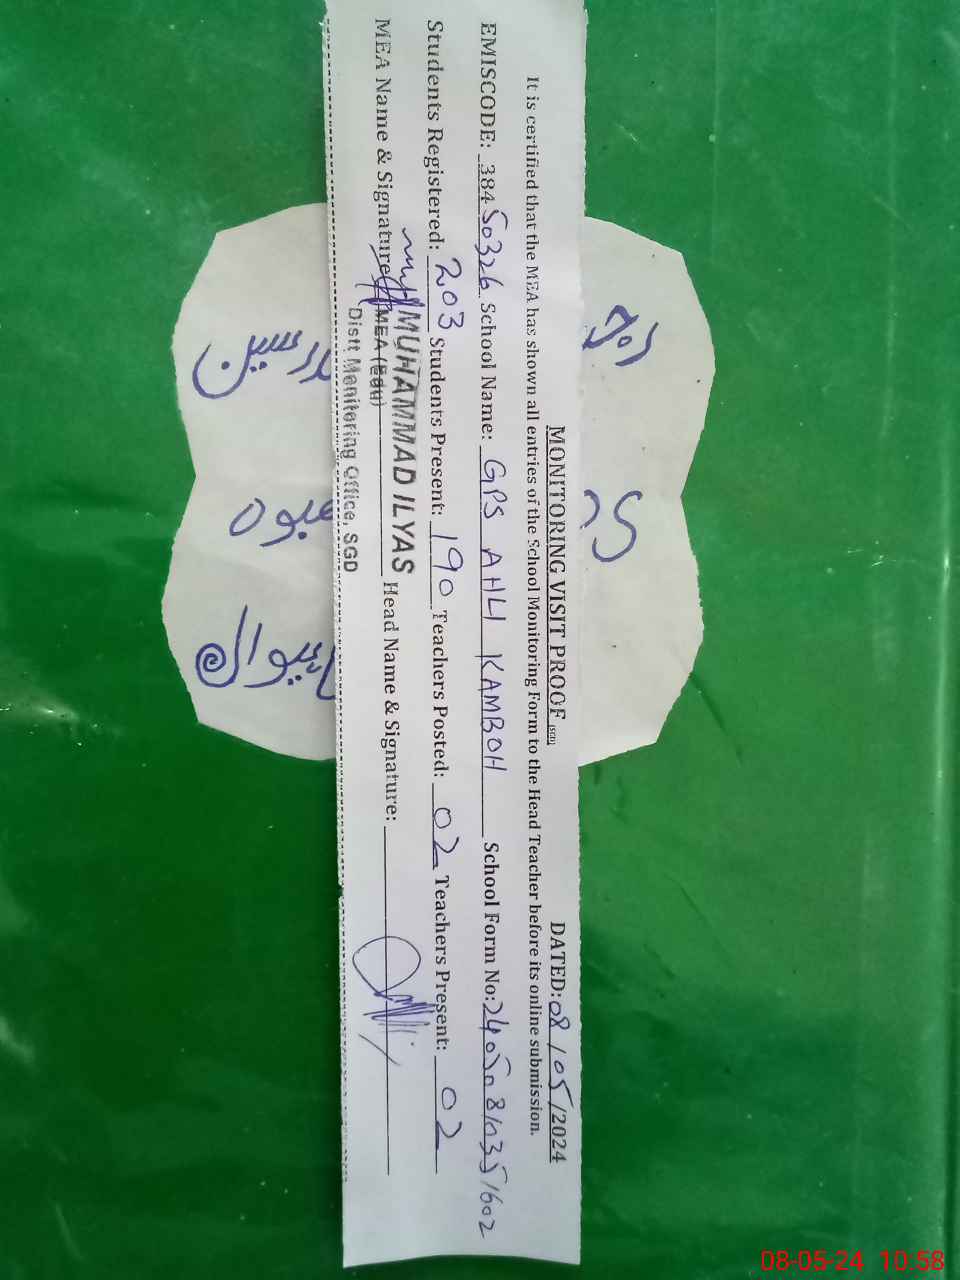 MONITORING VISIT PROOF (SGD) DATED: 08/05/2024
It is certified that the MEA has shown all entries of the School Monitoring Form to the Head Teacher before its online submission.
EMISCODE: 38450326 School Name: GPS AHLI KAMBOH School Form No: 24050810351602
Students Registered: 203 Students Present: 190 Teachers Posted: 02 Teachers Present: 02
MEA Name & Signature: MUHAMMAD ILYAS Head Name & Signature:
MEA (Edu)
Distt Monitoring Office, SGD
08-05-24 10:58